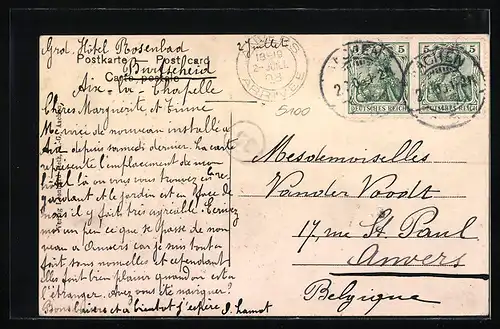 Grd. Hôtel Rosenbad
2 Juillet
Postkarte — Post card
Carte postale
Burtscheid
Aix-la-Chapelle
Chères Marguerite et
Me voici de nouveau installée à
Aix depuis samedi dernier. La carte
représente l'emplacement de mon
hôtel là ou vous trouvez
et le jardin est en face de
nous il y fait très agréable. Ecrivez
moi un peu ce que se passe de nou-
veau à Anvers car je suis tout à
fait sans nouvelles et cependant
elles font bien plaisir quand on est à
l'étranger. Avez vous été naviguer?
Bons baisers et à bientôt j'espère J. Lamot
5100
ANVERS
ARRIVÉE
AACHEN
AACHEN
5
5
DEUTSCHES REICH
DEUTSCHES REICH
Mesdemoiselles
Van der Voodt
17, rue St Paul
Anvers
Belgique